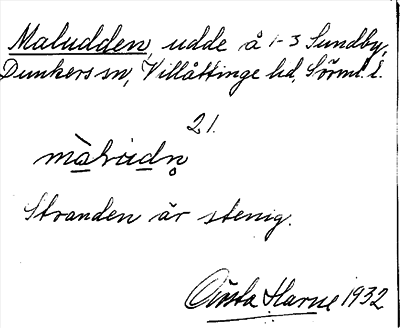 Maludden, udde å 1-3 Sundby,
Dunkers sn, Villåttinge hd, Sörml. l.
21.
Stranden är stenig.
Harne 1932